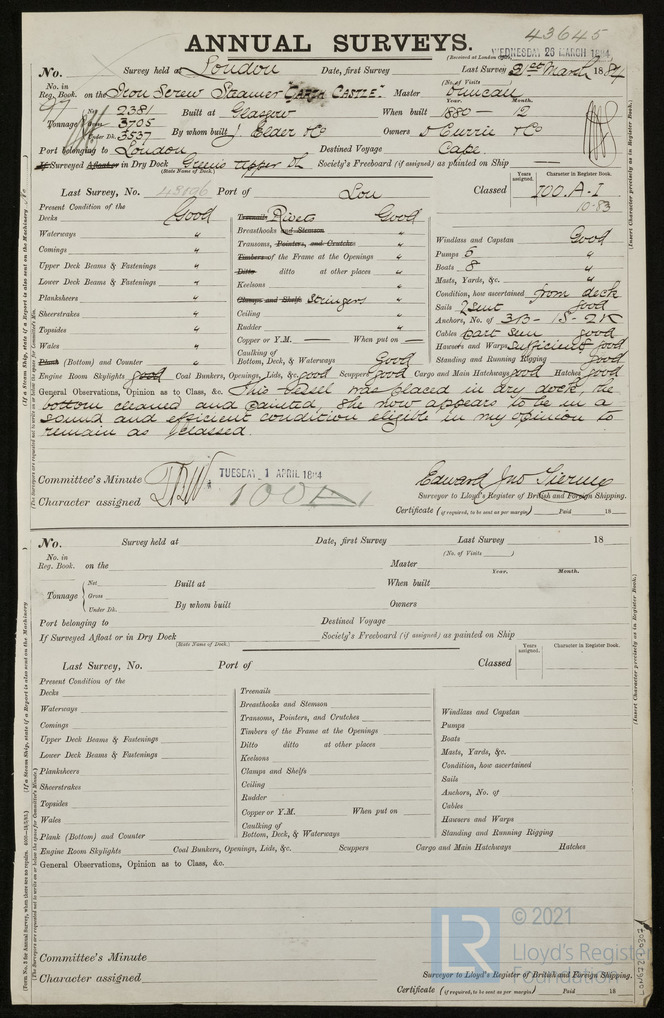 43645
ANNUAL SURVEYS.
WEDNESDAY 26 MARCH 1884
(Received at London Office
No. Survey held at London Date, first Survey Last Survey 21st March 1884
No. in Reg. Book. on the Iron Screw Steamer "Garth Castle" Master Duncan
(No. of Visits
Net 2381 Built at Glasgow When built 1880 - 12
Year. Month.
Tonnage Gross 3705
Under Dk. 3537 By whom built J. Elder & Co Owners D Currie & Co
Port belonging to London Destined Voyage Cape
If Surveyed Afloat or in Dry Dock Greens Upper Dk Society's Freeboard (if assigned) as painted on Ship —
(State Name of Dock.)
Last Survey, No. 43096 Port of Lon Classed 100.A.1
Years assigned. Character in Register Book.
10-83
Present Condition of the
Decks Good
Waterways "
Comings "
Upper Deck Beams & Fastenings "
Lower Deck Beams & Fastenings "
Planksheers "
Sheerstrakes "
Topsides "
Wales "
Plank (Bottom) and Counter "
Treenails Rivets Good
Breasthooks and Stemson "
Transoms, Pointers, and Crutches "
Timbers of the Frame at the Openings "
Ditto ditto at other places "
Keelsons "
Clamps and Shelfs Stringers "
Ceiling "
Rudder "
Copper or Y.M. — When put on —
Caulking of
Bottom, Deck, & Waterways Good
Windlass and Capstan Good
Pumps 6 "
Boats 8 "
Masts, Yards, &c. "
Condition, how ascertained from deck
Sails 2 Suit good
Anchors, No. of 3B - 1S - 2K
Cables part seen good
Hawsers and Warps Sufficient good
Standing and Running Rigging Good
Engine Room Skylights good Coal Bunkers, Openings, Lids, &c. good Scuppers good Cargo and Main Hatchways good Hatches good
General Observations, Opinion as to Class, &c. This vessel was placed in dry dock, the
bottom cleaned and painted, She now appears to be in a
sound and efficient condition eligible in my opinion to
remain as classed
Committee's Minute TUESDAY 1 APRIL 1884
Character assigned 100A1
Edward Jno
Surveyor to Lloyd's Register of British and Foreign Shipping.
Certificate (if required, to be sent as per margin) Paid 18
No. Survey held at Date, first Survey Last Survey 18
(No. of Visits )
No. in Reg. Book. on the Master
Year. Month.
Net Built at When built
Tonnage Gross
Under Dk. By whom built Owners
Port belonging to Destined Voyage
If Surveyed Afloat or in Dry Dock Society's Freeboard (if assigned) as painted on Ship
(State Name of Dock.)
Years assigned. Character in Register Book.
Last Survey, No. Port of Classed
Present Condition of the
Decks
Waterways
Comings
Upper Deck Beams & Fastenings
Lower Deck Beams & Fastenings
Planksheers
Sheerstrakes
Topsides
Wales
Plank (Bottom) and Counter
Treenails
Breasthooks and Stemson
Transoms, Pointers, and Crutches
Timbers of the Frame at the Openings
Ditto ditto at other places
Keelsons
Clamps and Shelfs
Ceiling
Rudder
Copper or Y.M. When put on
Caulking of
Bottom, Deck, & Waterways
Windlass and Capstan
Pumps
Boats
Masts, Yards, &c.
Condition, how ascertained
Sails
Anchors, No. of
Cables
Hawsers and Warps
Standing and Running Rigging
Engine Room Skylights Coal Bunkers, Openings, Lids, &c. Scuppers Cargo and Main Hatchways Hatches
General Observations, Opinion as to Class, &c.
Committee's Minute
Character assigned
Surveyor to Lloyd's Register of British and Foreign Shipping.
Certificate (if required, to be sent as per margin) Paid 18
(Insert Character precisely as in Register Book.)
(Insert Character precisely as in Register Book.)
LR © 2021
Lloyd's Register
Foundation